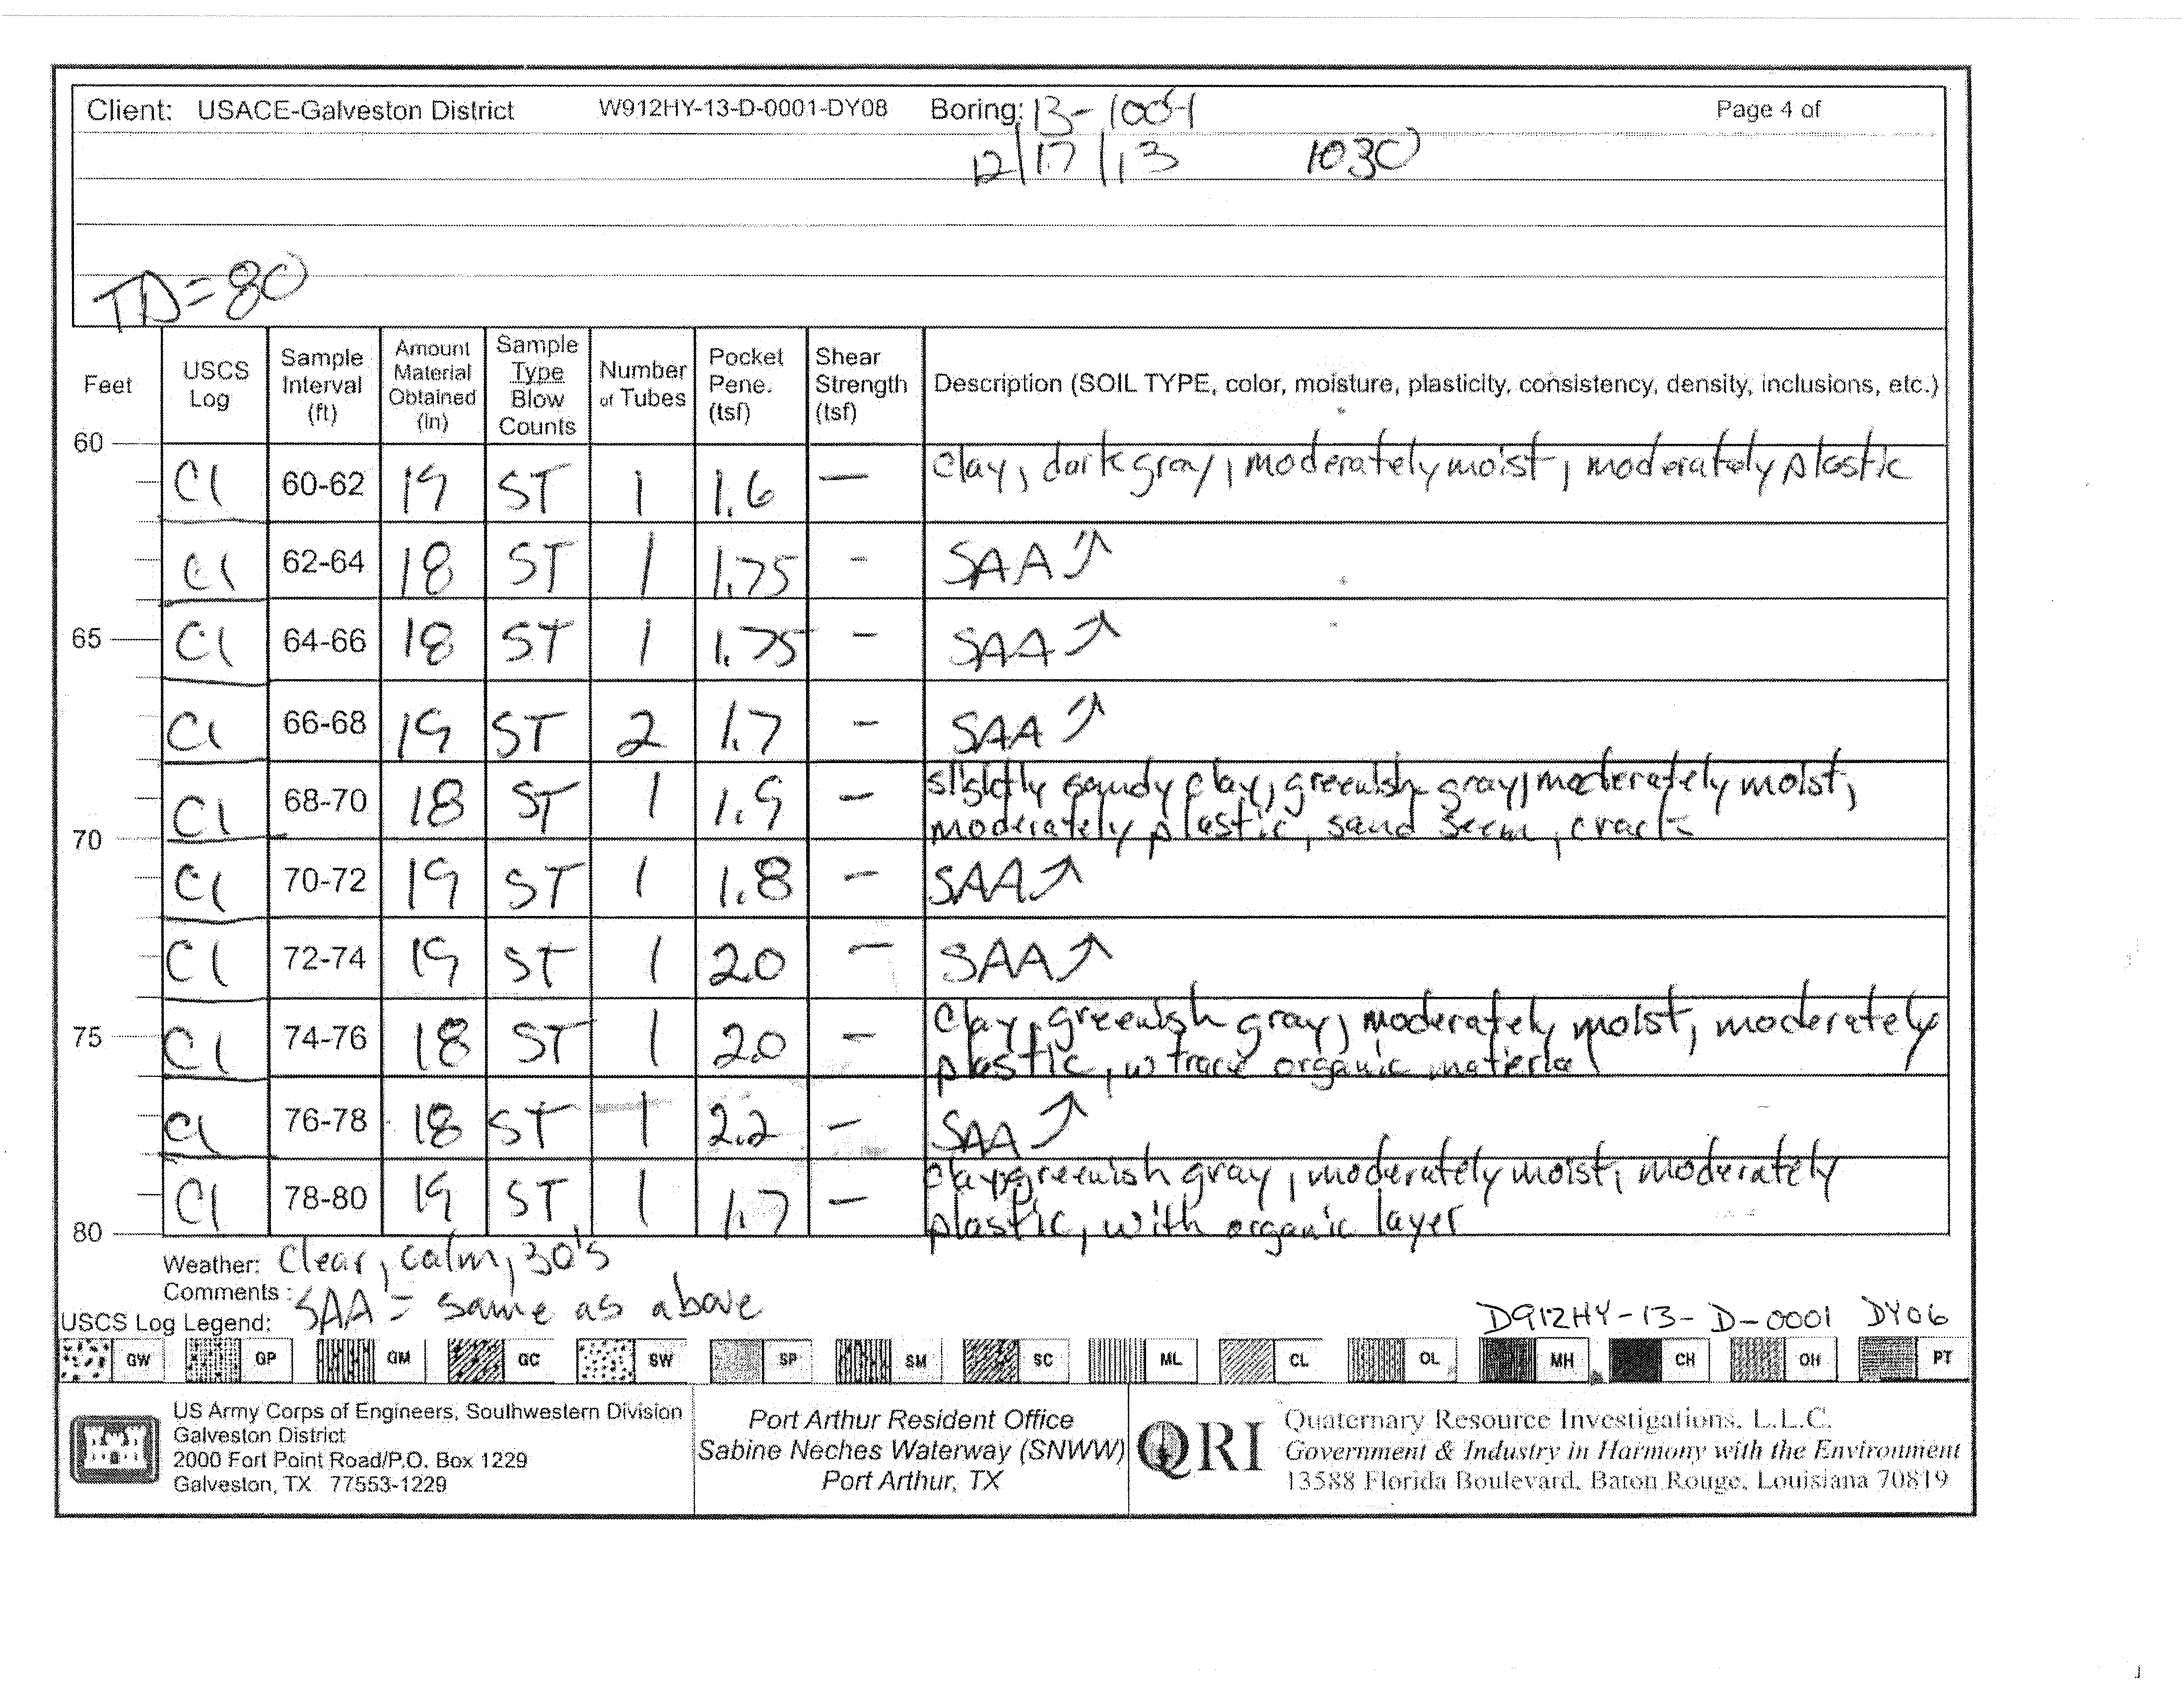 Client: USACE-Galveston District W912HY-13-D-0001-DY08 Boring: Page 4 of
12/17/13 1030
TD=80
Feet USCS Log Sample Interval (ft) Amount Material Obtained (in) Sample Type Blow Counts Number of Tubes Pocket Pene. (tsf) Shear Strength (tsf) Description (SOIL TYPE, color, moisture, plasticity, consistency, density, inclusions, etc.)
60
Cl 60-62 19 ST 1 1.6 — clay, dark gray, moderately moist, moderately plastic
Cl 62-64 18 ST 1 1.75 - SAA↑
65 Cl 64-66 18 ST 1 1.75 - SAA↑
Cl 66-68 19 ST 2 1.7 - SAA↑
Cl 68-70 18 ST 1 1.9 - slightly sandy clay, greenish gray, moderately moist,
moderately plastic, sand seem,
70
Cl 70-72 19 ST 1 1.8 - SAA↑
Cl 72-74 19 ST 1 2.0 - SAA↑
75 Cl 74-76 18 ST 1 2.0 - Clay, greenish gray, moderately moist, moderately
plastic, w trace organic material
Cl 76-78 18 ST 1 2.2 - SAA↑
Cl 78-80 19 ST 1 1.7 - clay, greenish gray, moderately moist, moderately
plastic, with organic layer
80
Weather: Clear, calm, 30's
Comments: SAA = same as above
USCS Log Legend: D912HY-13-D-0001 DY06
GW GP GM GC SW SP SM SC ML CL OL MH CH OH PT
US Army Corps of Engineers, Southwestern Division
Galveston District
2000 Fort Point Road/P.O. Box 1229
Galveston, TX 77553-1229
Port Arthur Resident Office
Sabine Neches Waterway (SNWW)
Port Arthur, TX
QRI
Quaternary Resource Investigations, L.L.C.
Government & Industry in Harmony with the Environment
13588 Florida Boulevard, Baton Rouge, Louisiana 70819